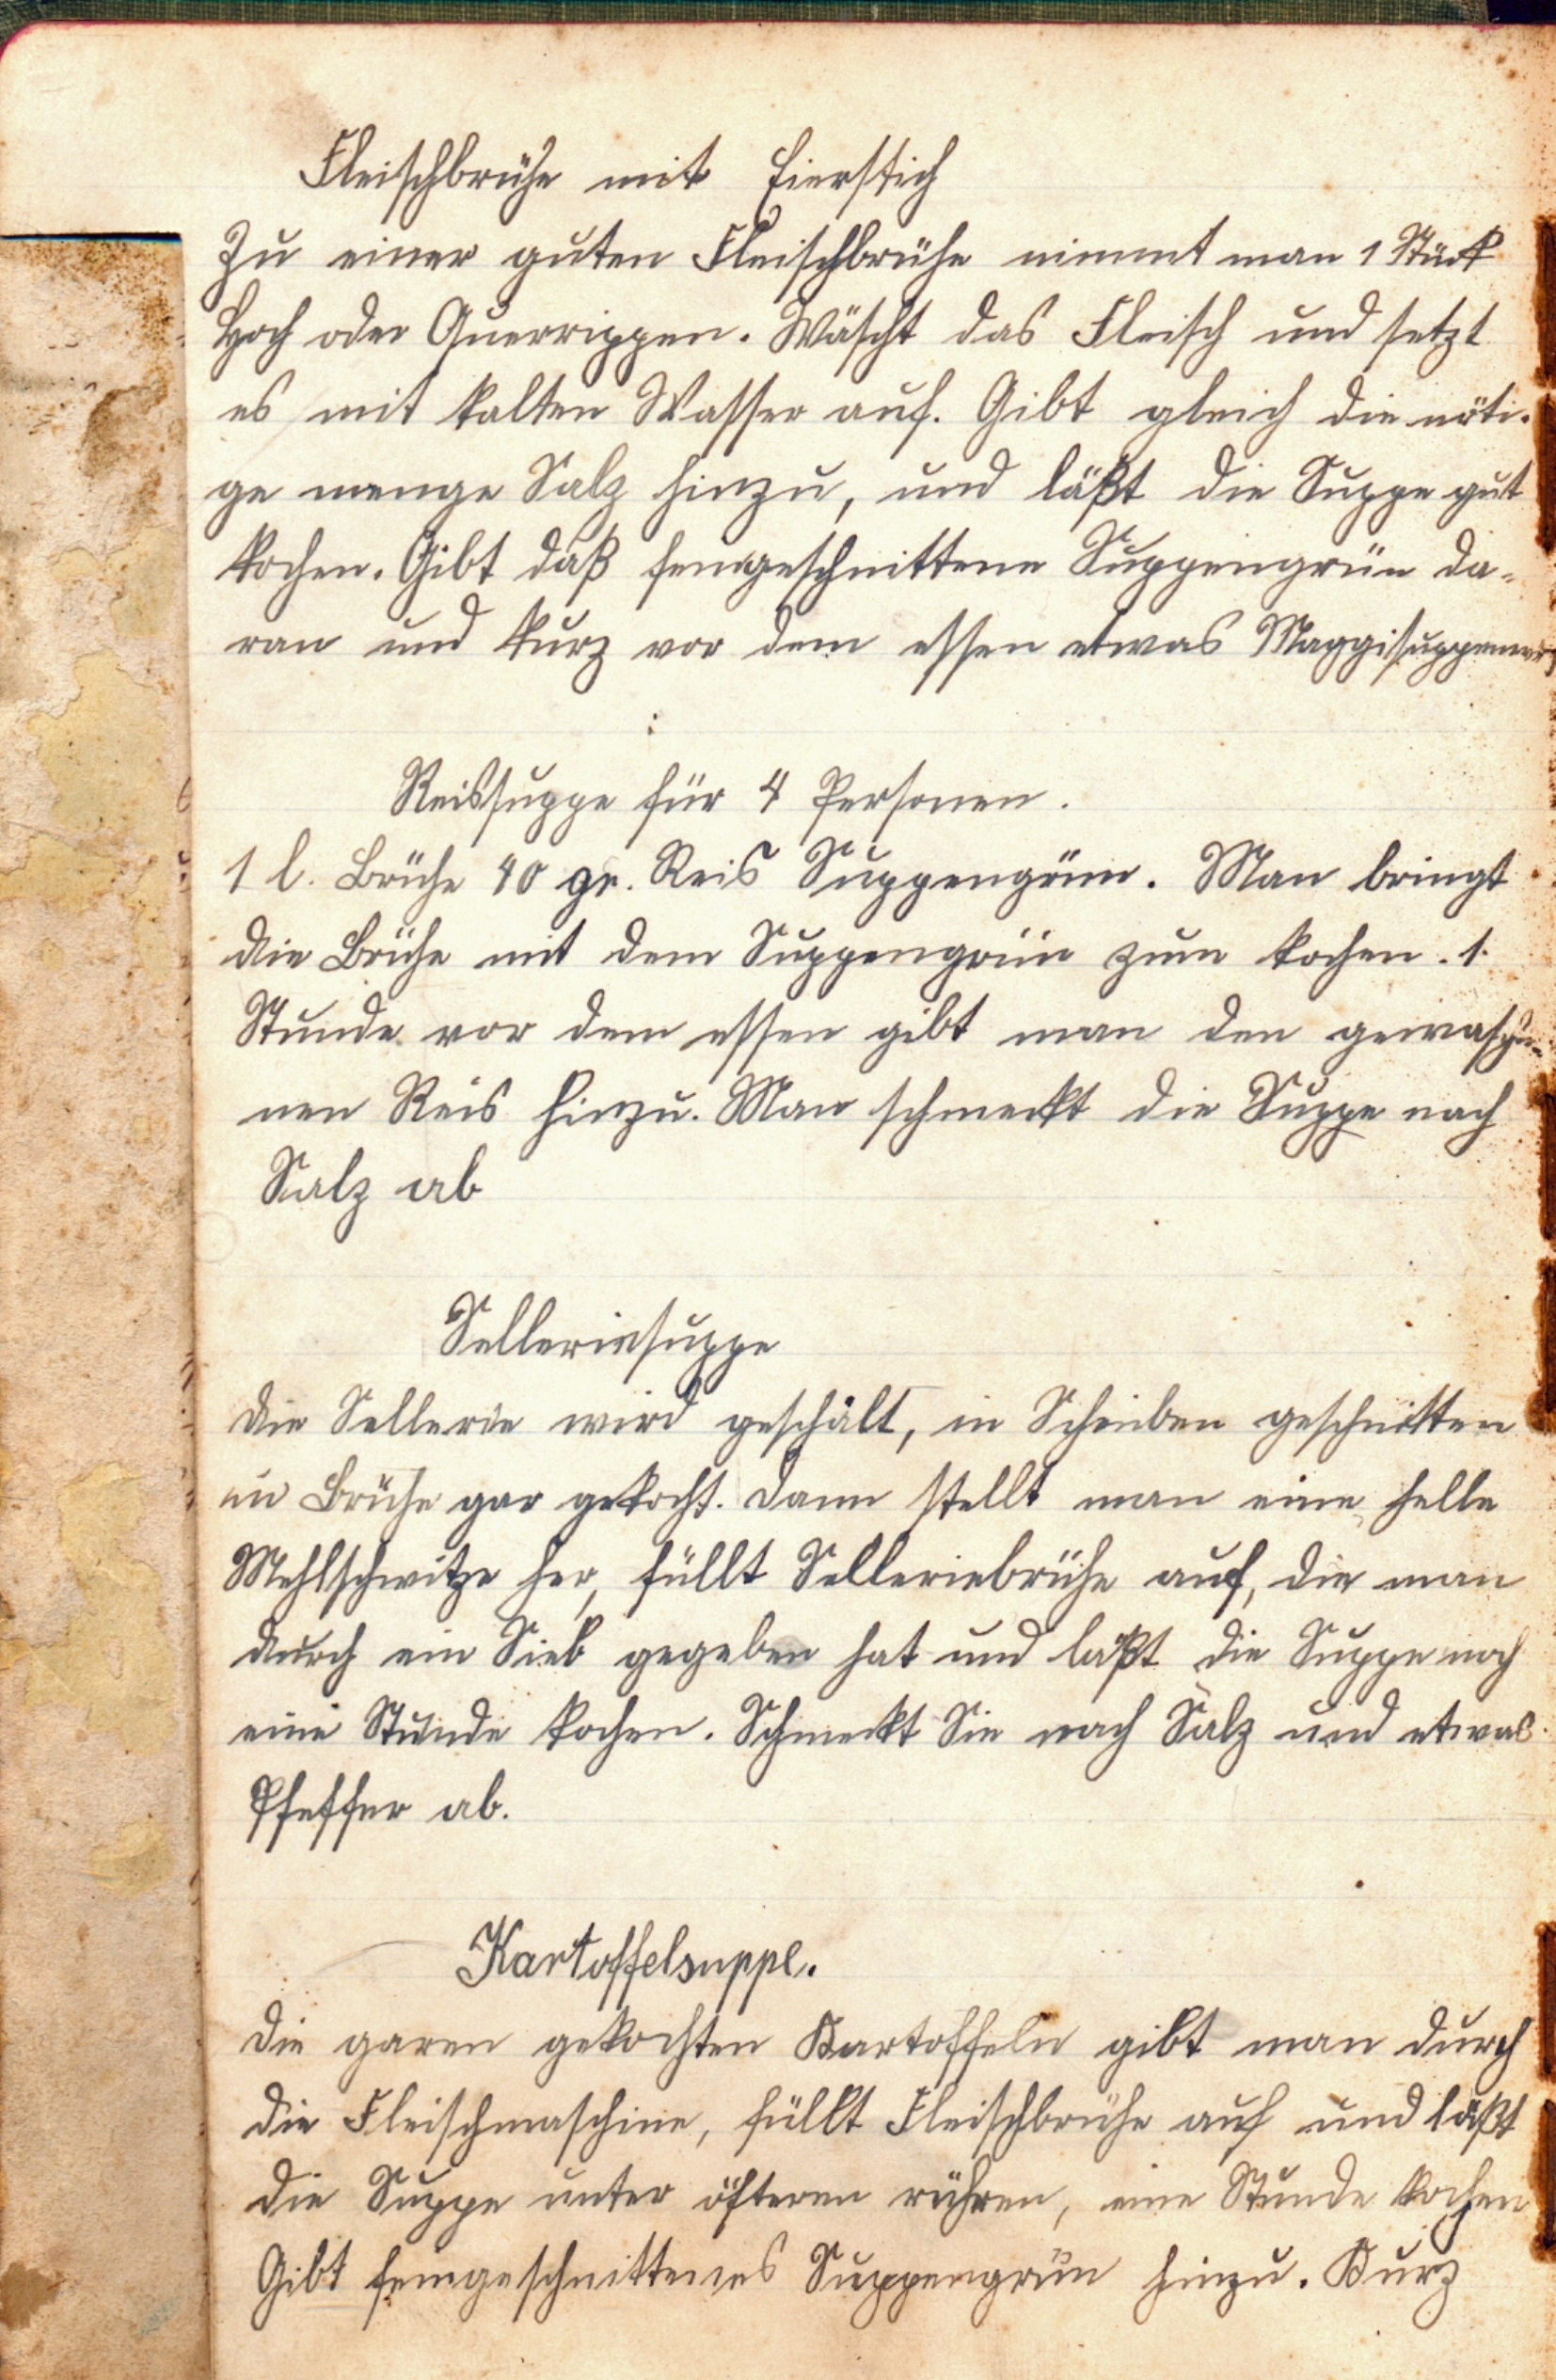 Fleischbrühe mit Eierstich
Zu einer guten Fleischbrühe nimmt man 1 Stück
Hoch oder Querrippen. Wäscht das Fleisch und setzt
es mit kalten Wasser auf. Gibt gleich die nöti-
ge menge Salz hinzu, und läßt die Suppe gut
kochen. Gibt daß feingeschnittene Suppengrün da-
ran und kurz vor dem essen etwas Maggisuppenwürz
Reissuppe für 4 Personen.
1 l. Brühe 40 gr. Reis Suppengrün. Man bringt
die Brühe mit dem Suppengrün zum kochen. 1.
Stunde vor dem essen gibt man den gewasche-
nen Reis hinzu. Man schmeckt die Suppe nach
Salz ab
Selleriesuppe
Die Sellerie wird geschält, in Scheiben geschnitten
in Brühe gar gekocht. Dann stellt man eine helle
Mehlschwitze her, füllt Selleriebrühe auf, die man
durch ein Sieb gegeben hat und läßt die Suppe noch
eine Stunde kochen. Schmeckt Sie nach Salz und etwas
Pfeffer ab.
Kartoffelsuppe.
Die garen gekochten Kartoffeln gibt man durch
die Fleischmaschine, füllt Fleischbrühe auf und läßt
die Suppe unter öfteren rühren, eine Stunde kochen
Gibt feingeschnittenes Suppengrün hinzu. Kurz